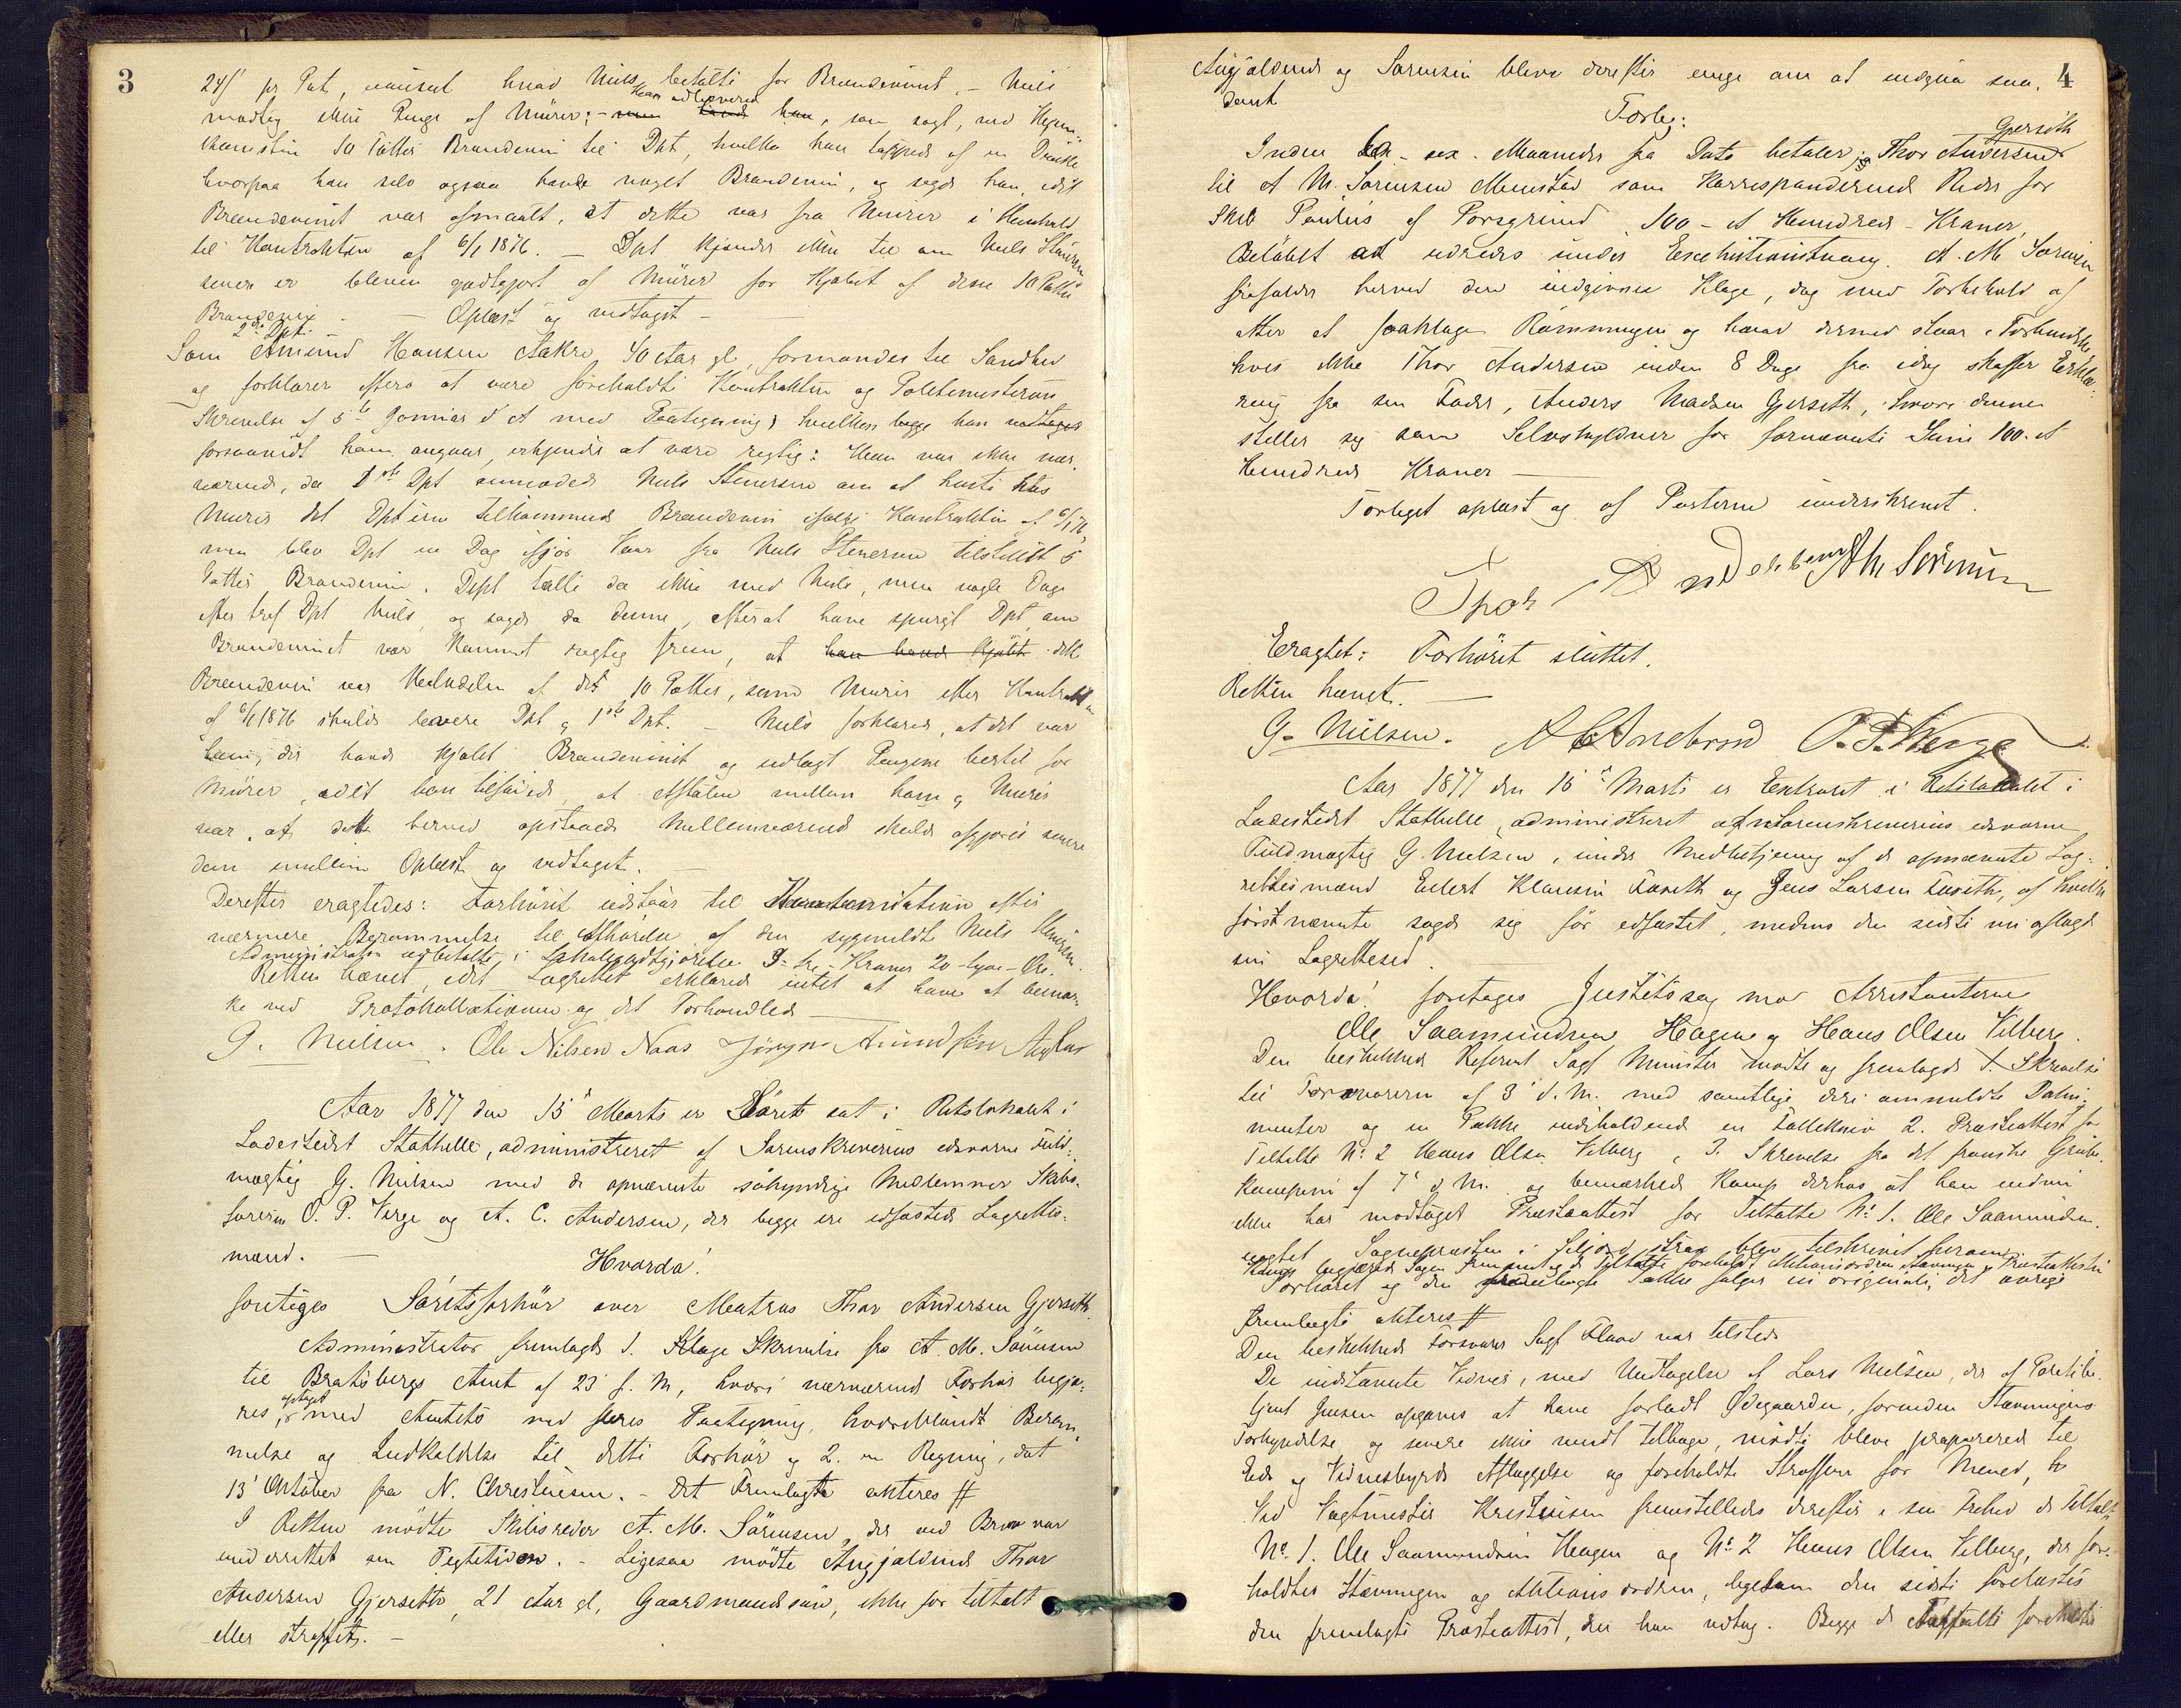 3
24/ pr Pot, uanset hvad Niels betalte for Brændevinet. – Niels
Han udleverede
modtog ikke Penge af Mürer; – men havde han, som sagt, ved Hjem-
komsten 10 Potter Brændevin til Dpt, hvilke han tappede af en Dunk
hvorpaa han selv ogsaa havde noget Brændevin, og sagde han, idet
Brændevinet var afmaalt, at dette var fra Mürer i Henhold
til Kontrakten af 6/1 1876. – Dpt kjender ikke til om Niels Stenersen
senere er bleven godtgjort af Mürer for Kjøbet af disse 10 Potter
Brændevin. – Oplæst og vedtaget –
2det Dpt.
Som Amund Hansen Aakre, 40 Aar gl, formanedes til Sandhed
og forklarer efter at være foreholdt Kontrakten og Politimesterens
Skrivelse af 5te Januar d A med Paategning, hvilken begge han vedtager
forsaavidt ham angaar, erkjendes at være rigtig: Han var ikke nær-
værende, da 1ste Dpt anmodede Niels Stenersen om at hente hos
Mürer det Dpterne tilkommende Brændevin ifølge Kontrakten af 6/1 76,
men blev Dpt en Dag ifjor Vaar fra Niels Stenersen tilstillet 5
Potter Brændevin. Dept talte da ikke med Niels, men nogle Dage
efter traf Dpt Niels, og sagde da denne, efterat have spurgt Dpt, om
Brændevinet var kommet rigtig frem, at han havde kjøbt dette
Brændevin var Halvdelen af det 10 Potter, som Mürer efter Kontrakten
af 6/1 1876 skulde levere Dpt og 1ste Dpt. – Niels forklarede, at det var
ham, der havde kjøbt Brændevinet og udlagt Pengene hertil for
Mürer, idet han tilføiede, at Aftalen mellem ham og Mürer
var, at dette herved opstaaede Mellemværende skulde opgjøres senere
dem imellem. Oplæst og vedtaget. –
Derefter eragtedes: Forhøret udstaar til Kontinuation efter
nærmere Berammelse til Afhørelse af den sygmeldte Niels Stenersen.
Administrator udbetalte i Lokalgodtgjørelse 3 – tre – Kroner 20 – tyve – Øre.
Retten hævet, idet Lagrettet erklærede intet at have at bemær-
ke ved Protokollationen og det Forhandlede –
G. Nielsen. Ole Nilsen Naas Jörgen Amundsen
Aar 1877 den 15de Marts er Söret sat i Retslokalet i
Ladestedet Stathelle, administreret af Sorenskriverens edsvorne Fuld-
mægtig G. Nielsen med de opnævnte søkyndige Medlemmer Skibs-
förerne O. P. Verge og A. C. Andersen, der begge ere edfæstede Lagrettes-
mænd. – Hvorda!
foretoges Söretsforhör over Matros Thor Andersen Gjerseth.
Administrator fremlagde 1. Klage Skrivelse fra A. M. Sörensen
til Bratsbergs Amt af 23de f. M, hvori nærværende Forhör begjæ-
optaget
res, med Amtets med fleres Paategning, hvoriblandt Beram-
melse og Indkaldelse til dette Forhör og 2. en Regning, dat
13de Oktober fra N. Christensen. – Det Fremlagte akteres #
I Retten mödte Skibsreder A. M. Sörensen, der ved Brev var
underrettet om Tegtetiden. – Ligesaa mödte Angjældende Thor
Andersen Gjerseth, 21 Aar gl, Gaardmandssön, ikke för tiltalt
eller straffet. –
4
Angjældende og Sørensen bleve derefter enige om at indgaa saa-
dant
Forlig:
Gjerseth
Inden 6 – sex – Maaneder fra Dato betaler jeg Thor Andersen
til A M. Sørensen Menstad som Korresponderende Reder for
Skib Paulus af Porsgrund 100 – et Hundrede – Kroner,
Beløbet at udredes under Exekutionstvang. A. M Sørensen
frafalder herved den indgivne Klage, dog med Forbehold af
atter at paaklage Rømningen og hvad dermed staar i Forbindelse,
hvis ikke Thor Andersen inden 8 Dage fra idag skaffer Erklæ-
ring fra sin Fader, Anders Madsen Gjerseth, hvori denne
stiller sig som Selvskyldner for fornævnte Sum 100 – et
Hundrede Kroner –
Forliget oplæst og af Parterne underskrevet.
Thor Andersen AM Sörensen
Eragtet: Forhöret sluttet.
Retten hævet. –
G. Nielsen. A C Andersen O. P. Verge
Aar 1877 den 15de Marts er Extraret i Retslokalet i
Ladestedet Stathelle, administreret af Sorenskriverens edsvorne
Fuldmægtig G. Nielsen, under Medbetjening af de opnævnte Lag-
rettesmænd Eilert Klausen Tveith og Jens Larsen Tveith, af hvilke
førstnævnte sagde sig før edfæstet, medens den sidste nu aflagde
sin Lagrettesed.
Hvorda! foretoges Justitssag mod Arrestanterne
Ole Saamundsen Hagen og Hans Olsen Vilberg.
Den beskikkede Referent Sagf Münster mødte og fremlagde 1. Skrivelse
til Forsvareren af 3de d. M. med samtlige deri ommeldte Doku-
menter og en Pakke indeholdende en Follekniv 2. Præsteattest for
Tiltalte No 2 Hans Olsen Vilberg, 3. Skrivelse fra det franske Grube-
kompani af 7de d M. og bemærkede Komp derhos at han endnu
ikke har modtaget Præsteattest for Tiltalte No 1. Ole Saamundsen,
uagtet Sognepræsten i Seljord strax blev tilskrevet herom.
begjærede Sagen fremmet og de Tiltalte foreholdt Aktionsordren Stævningen og Præsteattesten
Forhøret og den fremlagte Pakke følger in originali, det øvrige
fremlagte akteres #
Den beskikkede Forsvarer Sagf Flood var tilstede
De indstævnte Vidner, med Undtagelse af Lars Nielsen, der af Politibe-
tjent Jensen opgaves at have forladt Ødegaarden, forinden Stævningens
Forkyndelse og senere ikke vendt tilbage, mødte bleve præparerede til
Eds og Vidnesbyrds Aflæggelse og foreholdte Straffen for Mened,
Ved Vagtmester Kristensen fremstilledes derefter i sin Frihed de Tiltalte
No. 1. Ole Saamundsen Hagen og No 2 Hans Olsen Vilberg, der fore-
holdtes Stævningen og Aktionsordren, ligesom den sidste forelæstes
den fremlagte Præsteattest, der han vedtog. Begge de Tiltalte foreholdtes